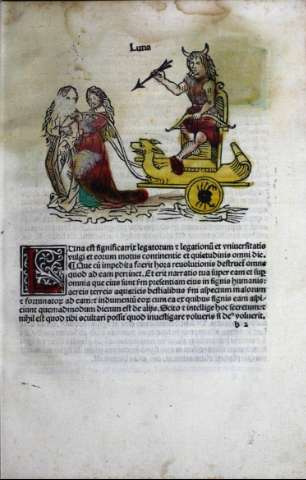 Luna
LUna est significatrix legatorum ⁊ legationũ et vniuersitatis
vulgi et eorum motus continentie et quietudinis omni die.
Et que cũ impedita fuerit hora reuolutionis destruet omne
quod ad eam pertinet. Et erit narratio tua super eam et sup
omnia que eius sunt fm presentiam eius in signis humanis:
aereis terreis aquaticis bestialibus fm aspectum malorum
⁊ fortunatorũ ad eam: ⁊ indumentũ eorum cum ea et ex quibus signis eam aspi
cient quemadmodum dictum est de alijs. Scito ⁊ intellige hoc secretum: ⁊
nihil est quod tibi occultari posse quod inuestigare volueris si deus voluerit.
b 2